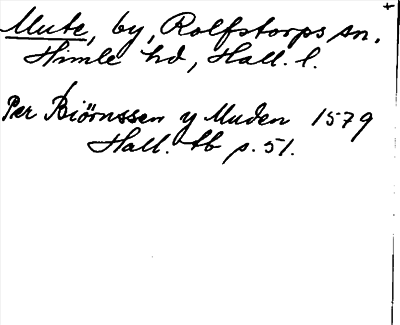 Mute, by, Rolfstorps sn.
Himle hd, Hall. l.
Per Biörnssen y Muden 1579
Hall. tb p. 51.